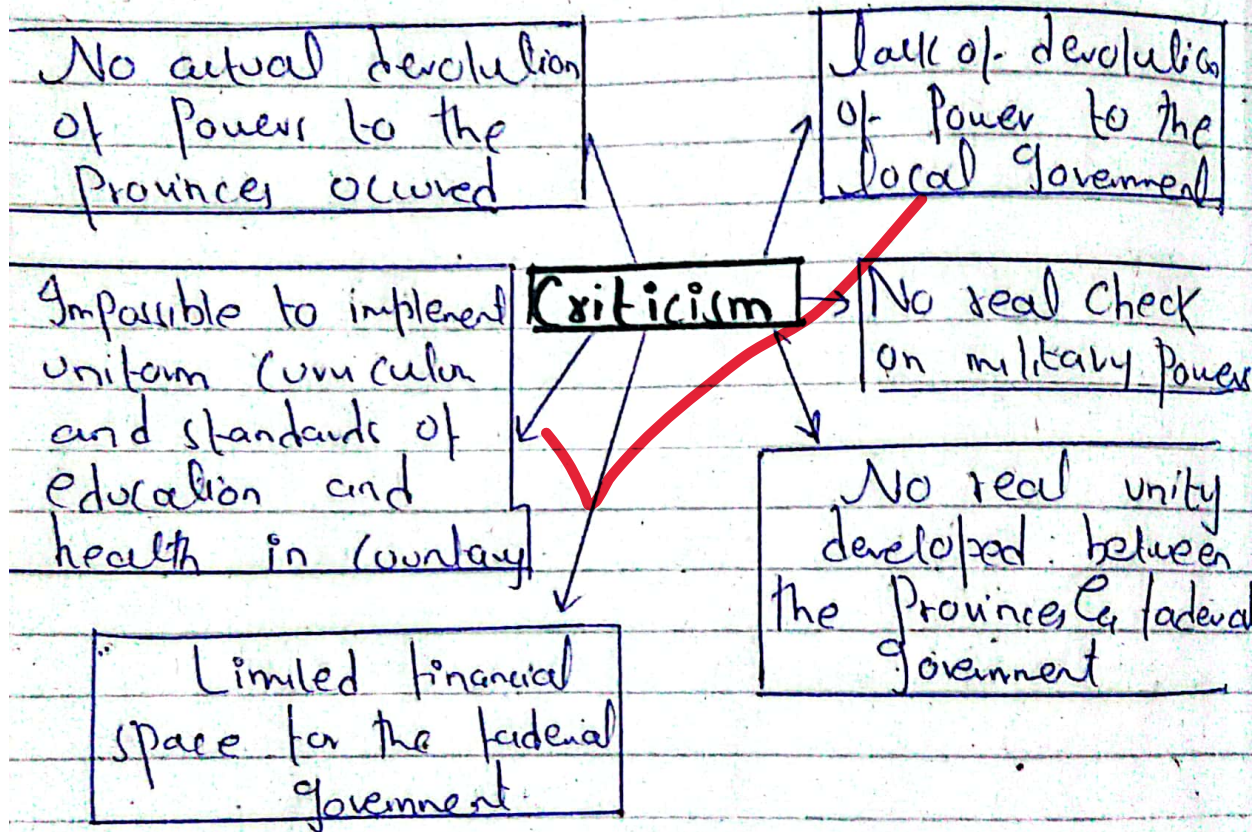 No actual devolution
of Powers to the
Provinces occured
lack of devolution
of Power to the
local government
Criticism
Impossible to implement
uniform Curriculum
and standards of
education and
health in Country
No real Check
on military Powers
No real unity
developed between
the Provinces & faderal
government
Limited financial
space for the faderial
government.